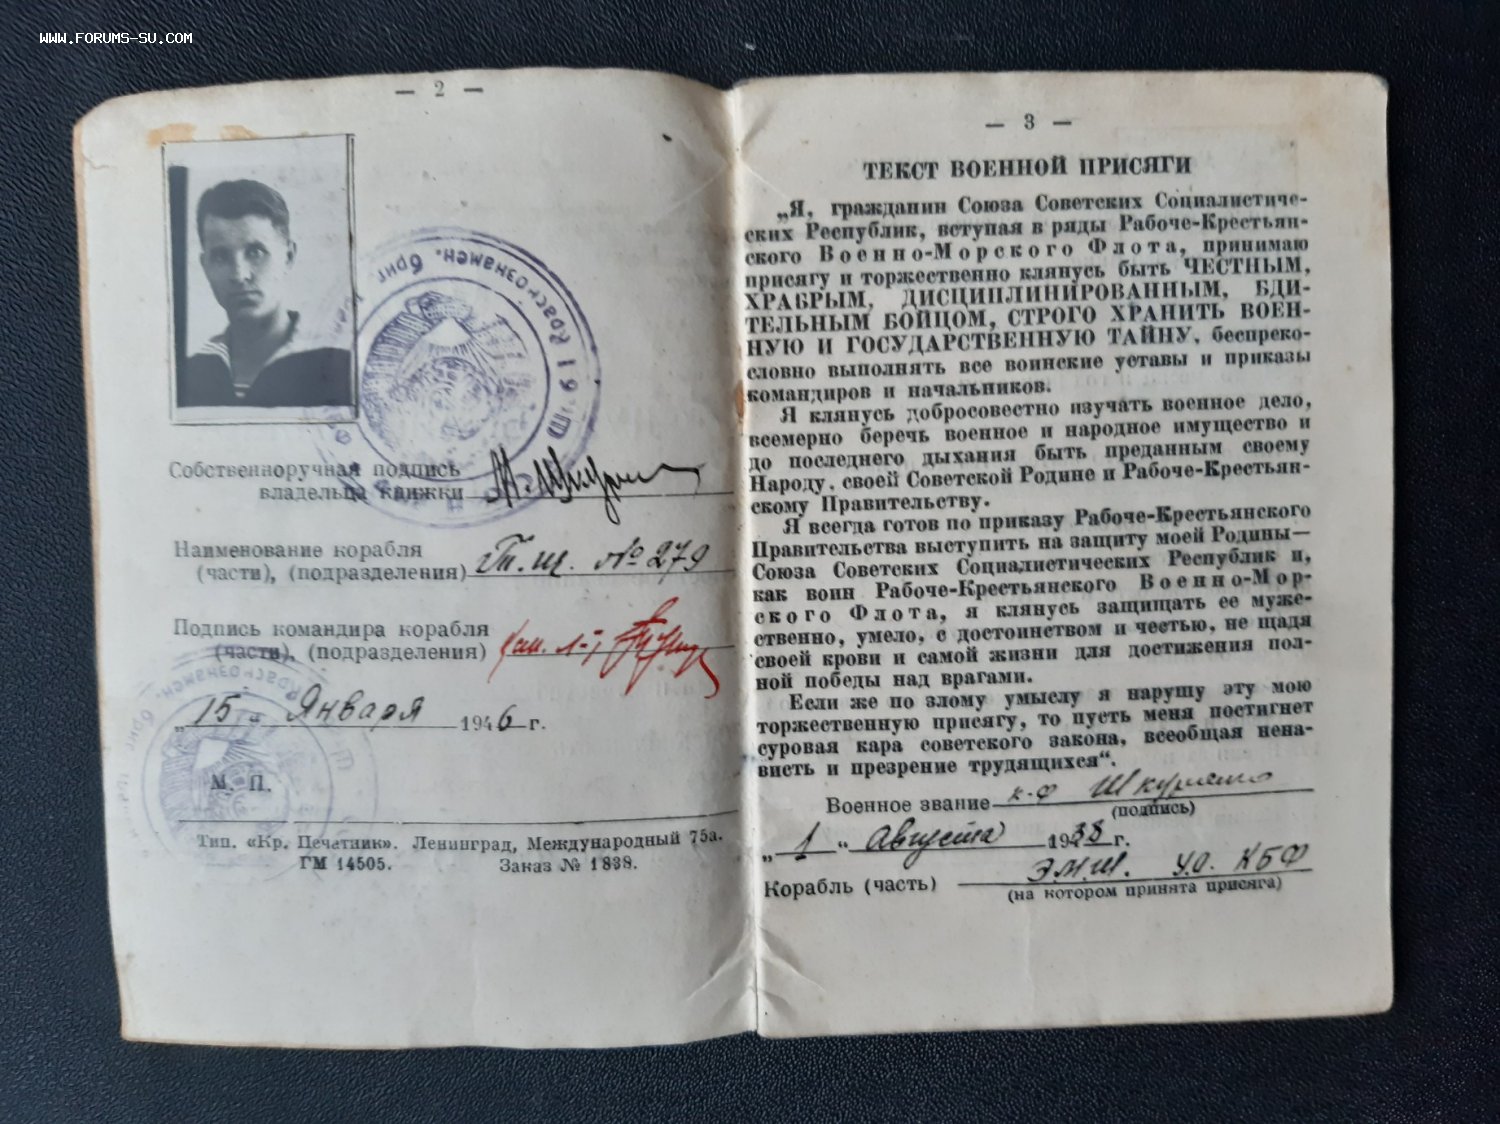 WWW.FORUMS-SU.COM
— 2 —
1 Краснознамен. бриг.
Собственноручная подпись
владельца книжки
Наименование корабля
(части), (подразделения) Т.щ. № 279
Подпись командира корабля
(части), (подразделения)
„15" Января 1946 г.
М. П.
Тип. «Кр. Печатник». Ленинград, Международный 75а.
ГМ 14505. Заказ № 1838.
— 3 —
ТЕКСТ ВОЕННОЙ ПРИСЯГИ
„Я, гражданин Союза Советских Социалистиче-
ских Республик, вступая в ряды Рабоче-Крестьян-
ского Военно-Морского Флота, принимаю
присягу и торжественно клянусь быть ЧЕСТНЫМ,
ХРАБРЫМ, ДИСЦИПЛИНИРОВАННЫМ, БДИ-
ТЕЛЬНЫМ БОЙЦОМ, СТРОГО ХРАНИТЬ ВОЕН-
НУЮ И ГОСУДАРСТВЕННУЮ ТАЙНУ, беспреко-
словно выполнять все воинские уставы и приказы
командиров и начальников.
Я клянусь добросовестно изучать военное дело,
всемерно беречь военное и народное имущество и
до последнего дыхания быть преданным своему
Народу, своей Советской Родине и Рабоче-Крестьян-
скому Правительству.
Я всегда готов по приказу Рабоче-Крестьянского
Правительства выступить на защиту моей Родины—
Союза Советских Социалистических Республик и,
как воин Рабоче-Крестьянского Военно-Мор-
ского Флота, я клянусь защищать ее муже-
ственно, умело, с достоинством и честью, не щадя
своей крови и самой жизни для достижения пол-
ной победы над врагами.
Если же по злому умыслу я нарушу эту мою
торжественную присягу, то пусть меня постигнет
суровая кара советского закона, всеобщая нена-
висть и презрение трудящихся“.
Военное звание к-ф
(подпись)
„1“ Августа 1938 г.
Корабль (часть) У.О. КБФ
(на котором принята присяга)